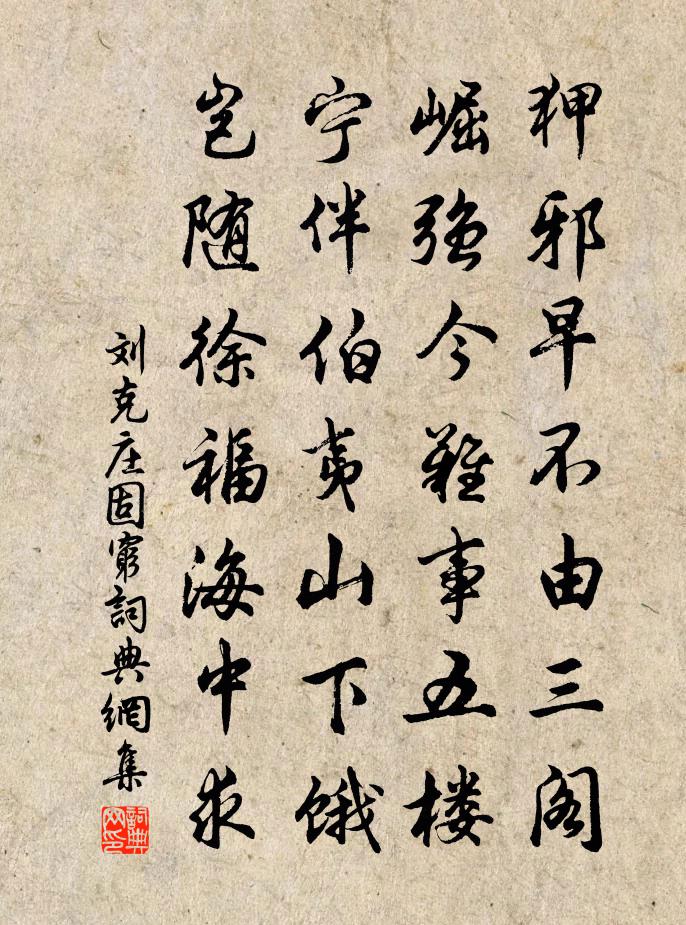 狎邪早不由三阁
崛强今难事五楼
宁伴伯夷山下饿
岂随徐福海中求
刘克庄固穷詞典網集
詞典网印